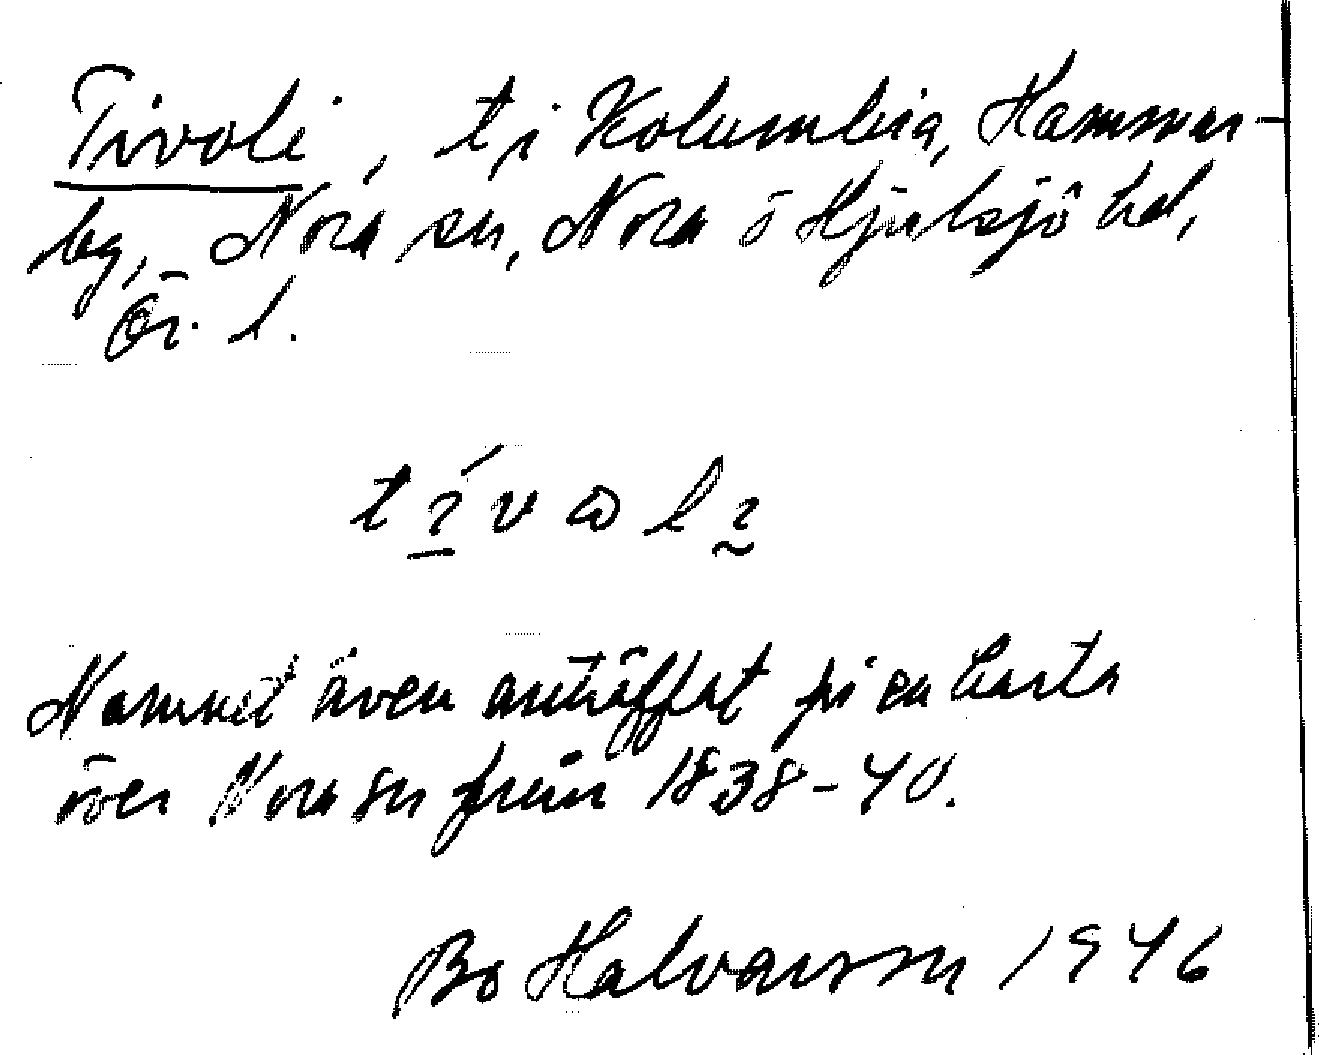 Tivoli, t, i Kolumbia, Hammar-
by, Nora sn, Nora o Hjulsjö bd,
Ör. l.
Namnet även anträffat på en karta
över Nora sn från 1838-40.
Bo Halvarsson 1946